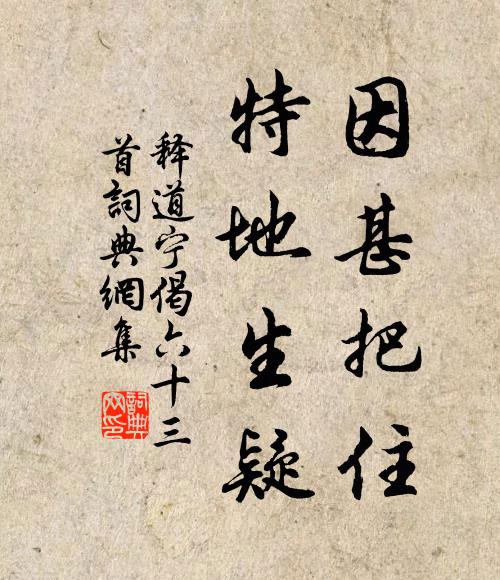 因甚把住
特地生疑
释道宁偈六十三
首詞典網集
詞典
网印